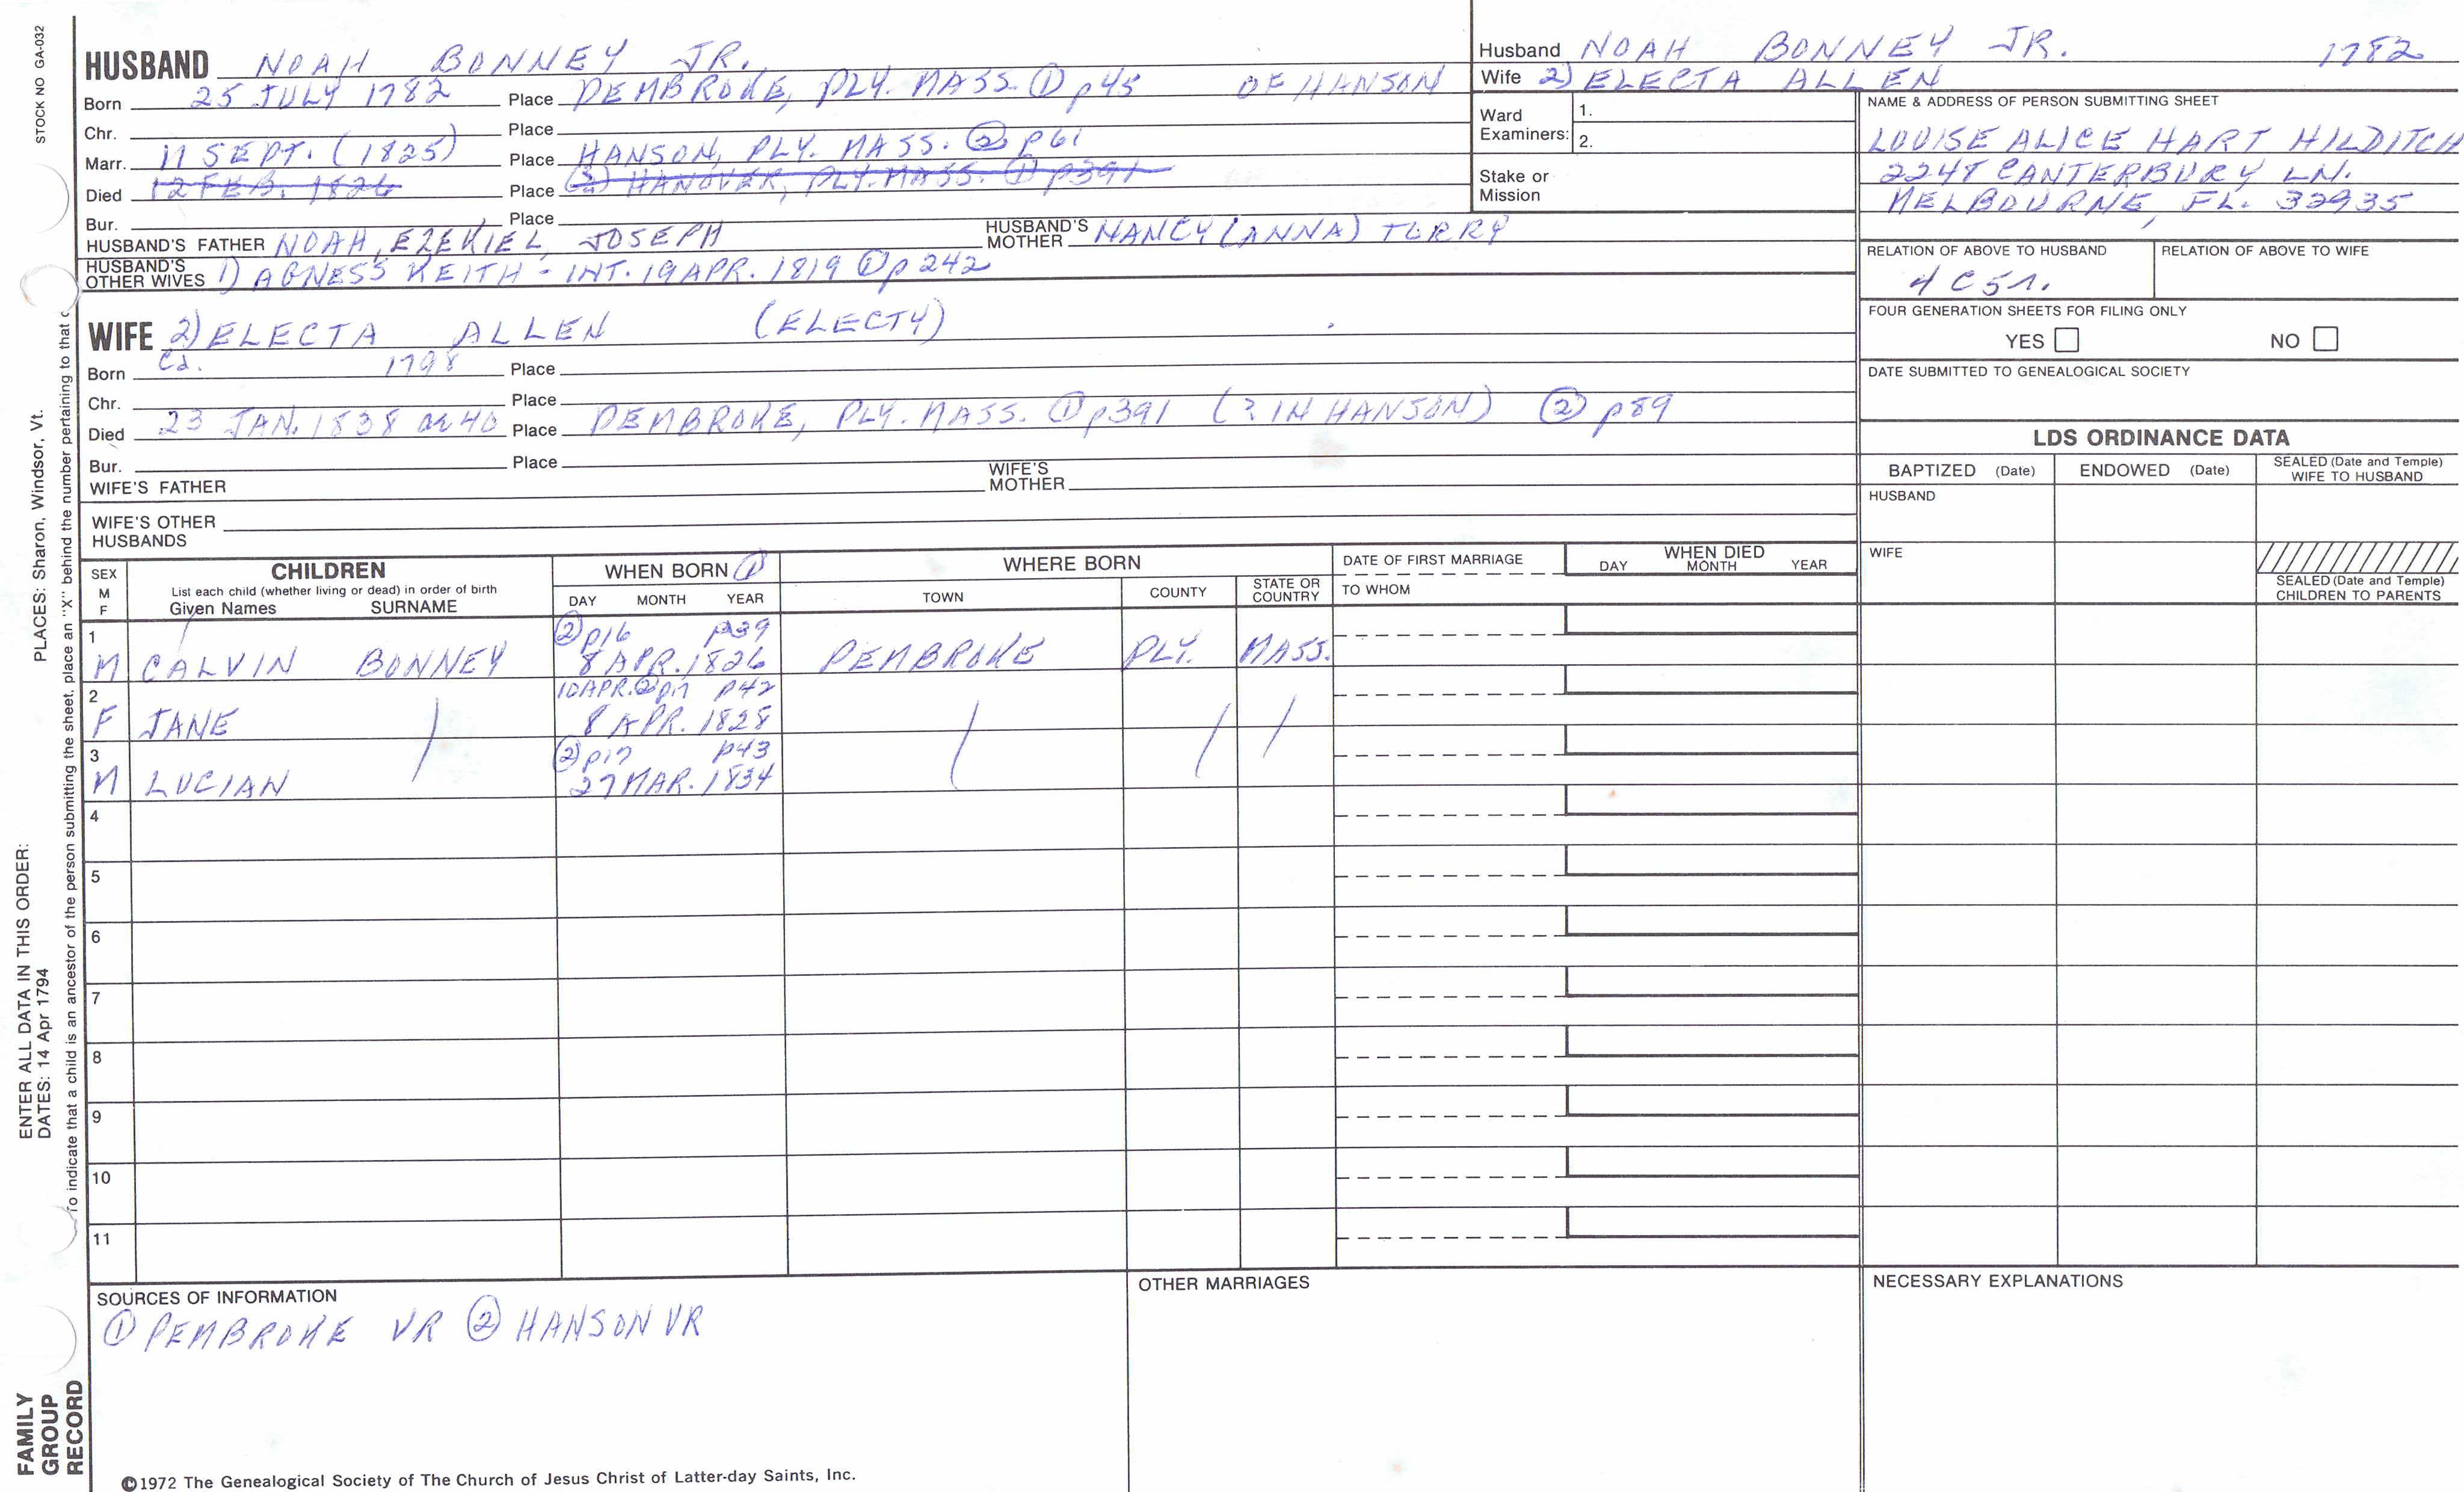 STOCK NO GA-032
PLACES: Sharon, Windsor, Vt.
ENTER ALL DATA IN THIS ORDER:
DATES: 14 Apr 1794
To indicate that a child is an ancestor of the person submitting the sheet, place an "X" behind the number pertaining to that c
FAMILY
GROUP
RECORD
HUSBAND NOAH BONNEY JR.
Born 25 JULY 1782 Place PEMBROKE, PLY. MASS. ① p45 OF HANSON
Chr. Place
Marr. 11 SEPT. (1825) Place HANSON, PLY. MASS. ② p61
Died 12 FEB. 1826 Place HANOVER, PLY. MASS. ① p391
Bur. Place
HUSBAND'S FATHER NOAH, EZEKIEL, JOSEPH HUSBAND'S MOTHER NANCY (ANNA) TORRY
HUSBAND'S OTHER WIVES 1) AGNESS KEITH - INT. 19 APR. 1819 ① p242
WIFE 2) ELECTA ALLEN (ELECTY)
Born Ca. 1798 Place
Chr. Place
Died 23 JAN. 1838 or 40 Place PEMBROKE, PLY. MASS. ① p391 (? IN HANSON) ② p89
Bur. Place
WIFE'S FATHER WIFE'S MOTHER
WIFE'S OTHER HUSBANDS
Husband NOAH BONNEY JR. 1782
Wife 2) ELECTA ALLEN
Ward Examiners: 1.
2.
Stake or Mission
NAME & ADDRESS OF PERSON SUBMITTING SHEET
LOUISE ALICE HART HILDITCH
2248 CANTERBURY LN.
MELBOURNE, FL. 32935
RELATION OF ABOVE TO HUSBAND RELATION OF ABOVE TO WIFE
4 C 5 r.
FOUR GENERATION SHEETS FOR FILING ONLY
YES NO
DATE SUBMITTED TO GENEALOGICAL SOCIETY
LDS ORDINANCE DATA
BAPTIZED (Date) ENDOWED (Date) SEALED (Date and Temple) WIFE TO HUSBAND
HUSBAND
WIFE
SEALED (Date and Temple) CHILDREN TO PARENTS
SEX M F CHILDREN WHEN BORN ① WHERE BORN DATE OF FIRST MARRIAGE WHEN DIED
List each child (whether living or dead) in order of birth
Given Names SURNAME DAY MONTH YEAR TOWN COUNTY STATE OR COUNTRY TO WHOM DAY MONTH YEAR
1 ② p16 p39
M CALVIN BONNEY 8 APR. 1826 PEMBROKE PLY. MASS.
2 10 APR. ② p17 p42
F JANE 8 APR. 1828
3 ② p17 p43
M LUCIAN 27 MAR. 1834
4
5
6
7
8
9
10
11
SOURCES OF INFORMATION
① PEMBROKE VR ② HANSON VR
OTHER MARRIAGES
NECESSARY EXPLANATIONS
©1972 The Genealogical Society of The Church of Jesus Christ of Latter-day Saints, Inc.